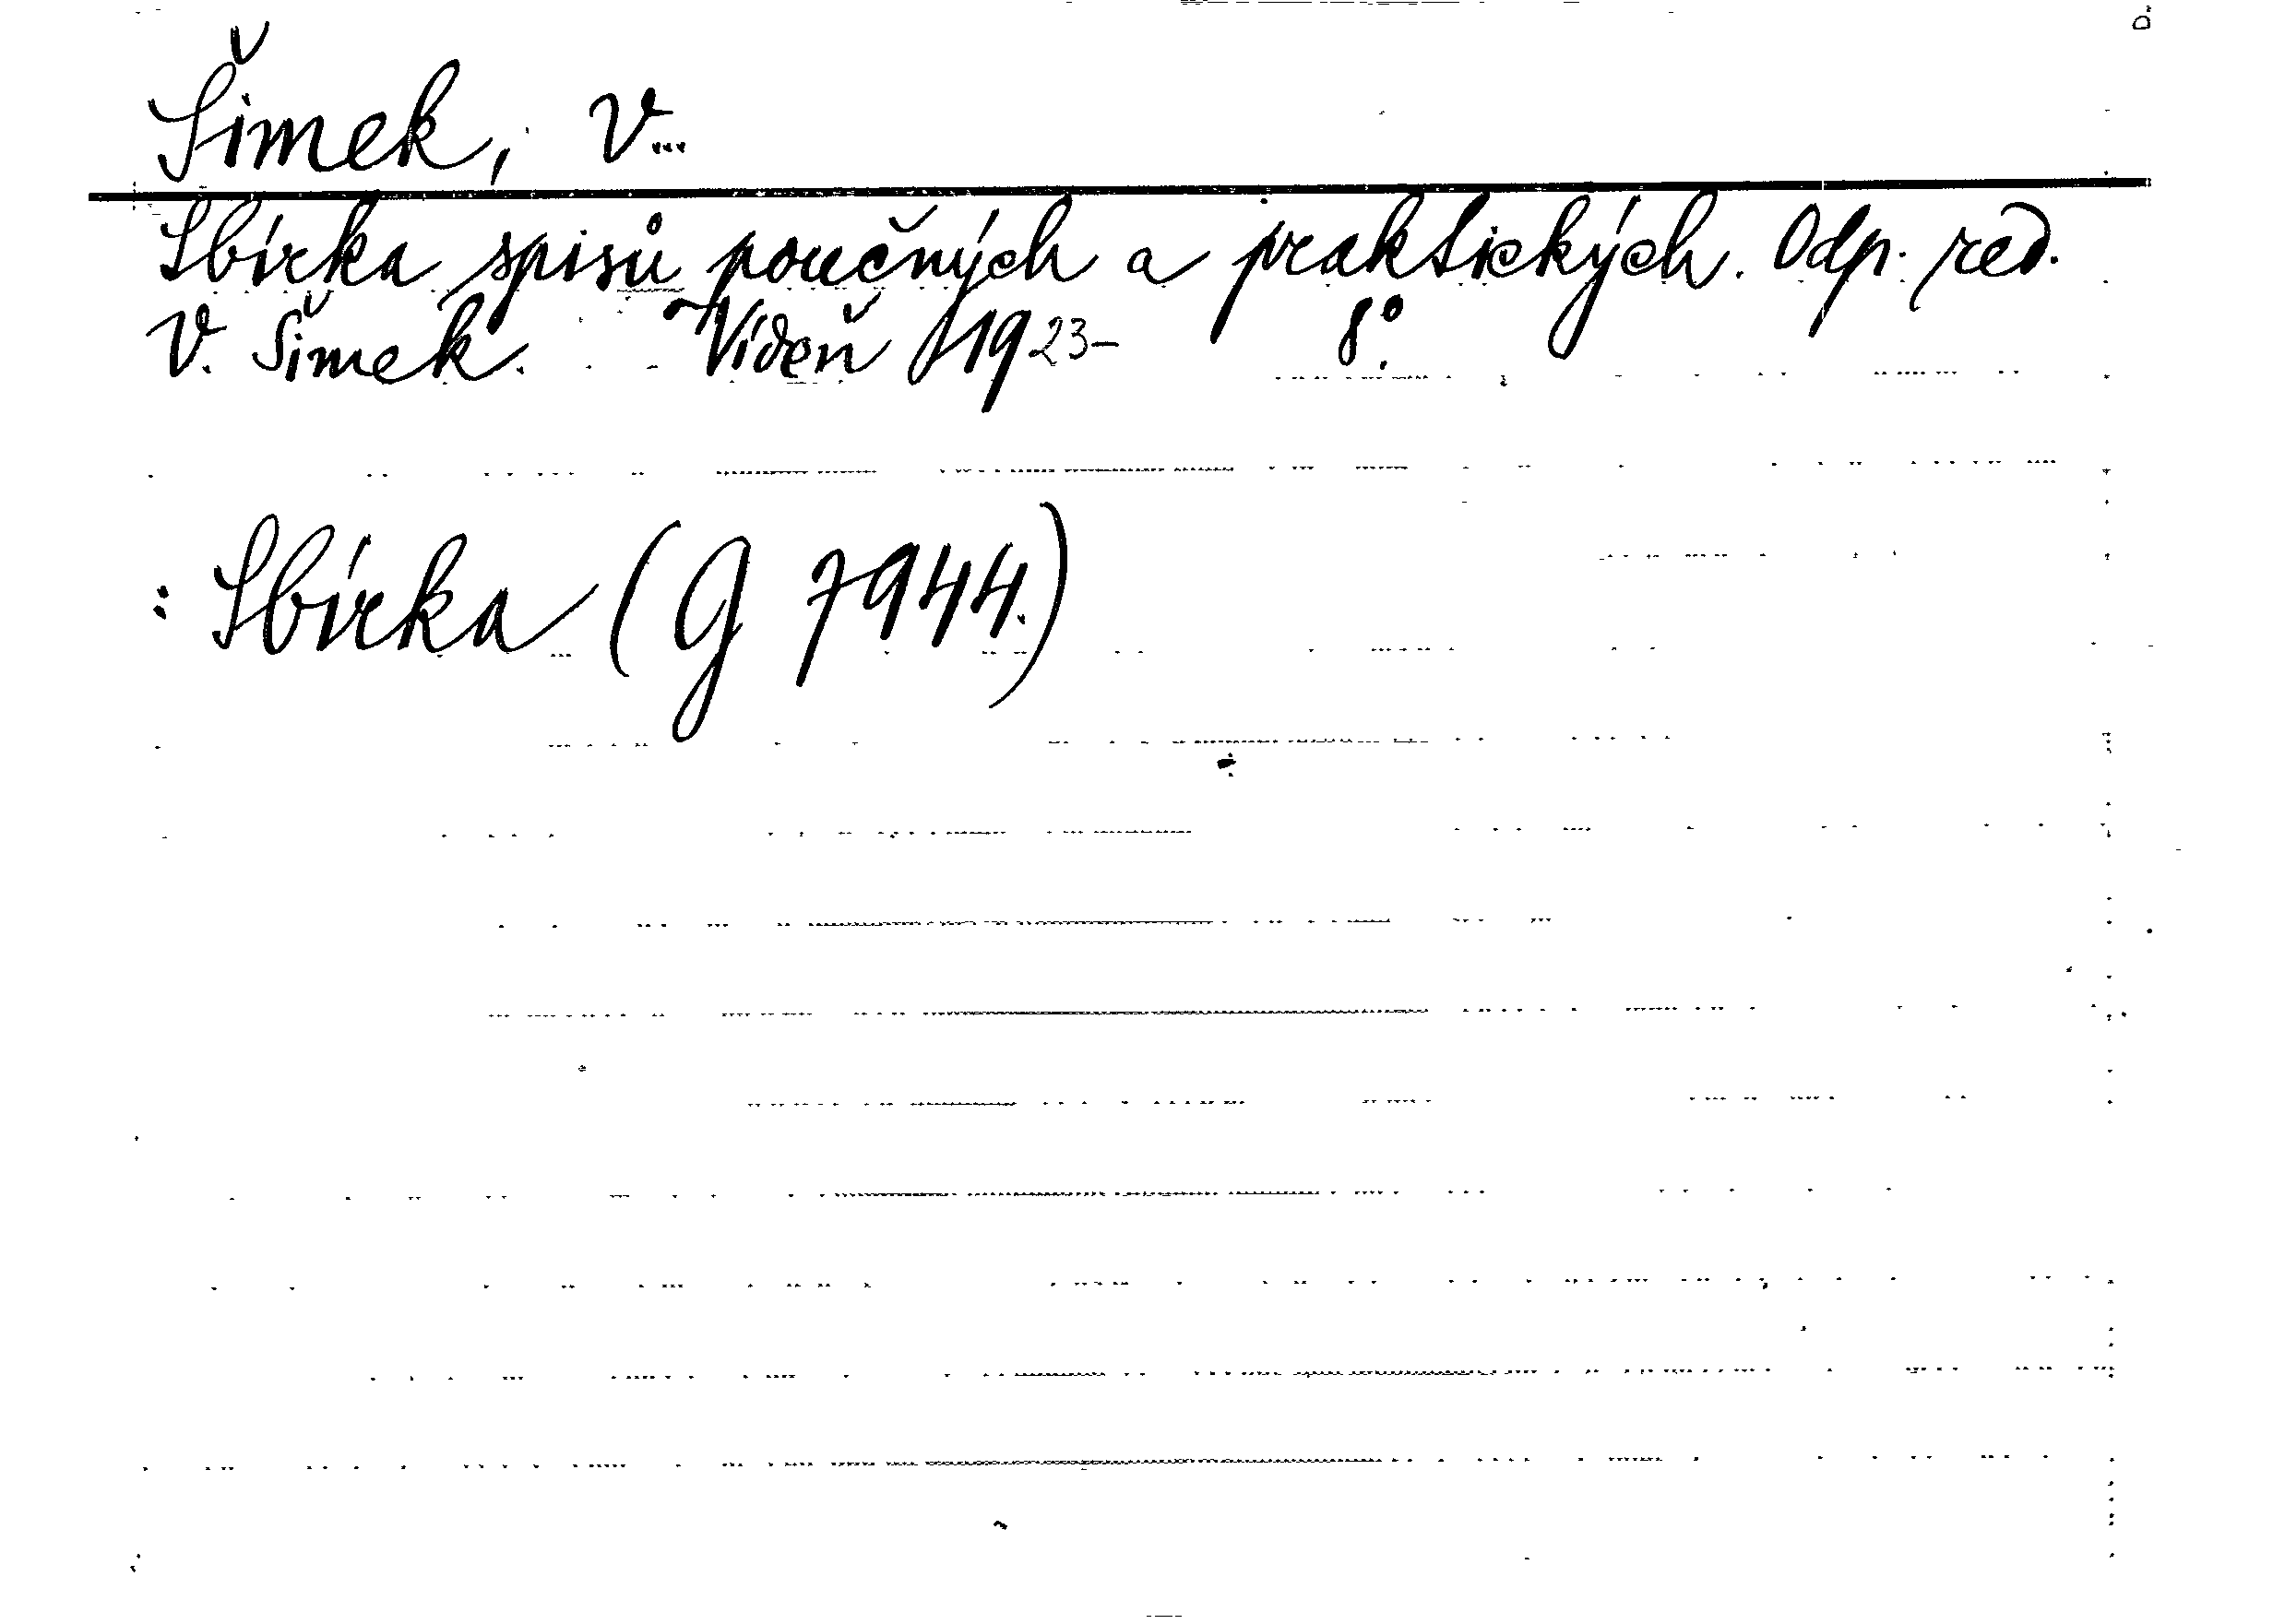 Šimek, V...
Sbírka spisů poučných a praktických. Odp. red.
V. Šimek. Vídeň 1923- 8°.
: Sbírka (G 7944.)